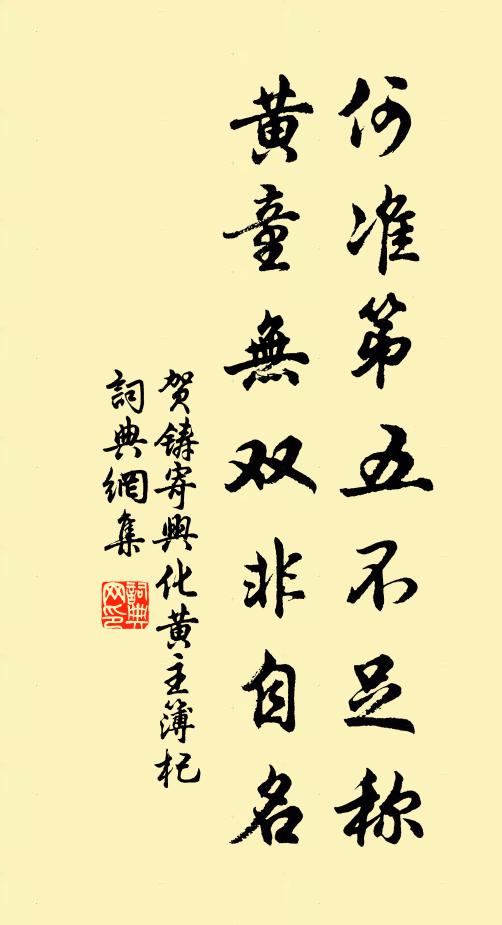 何准第五不足称
黄童無双非自名
贺鑄寄興化黄主簿杞
詞典網集
詞典网印